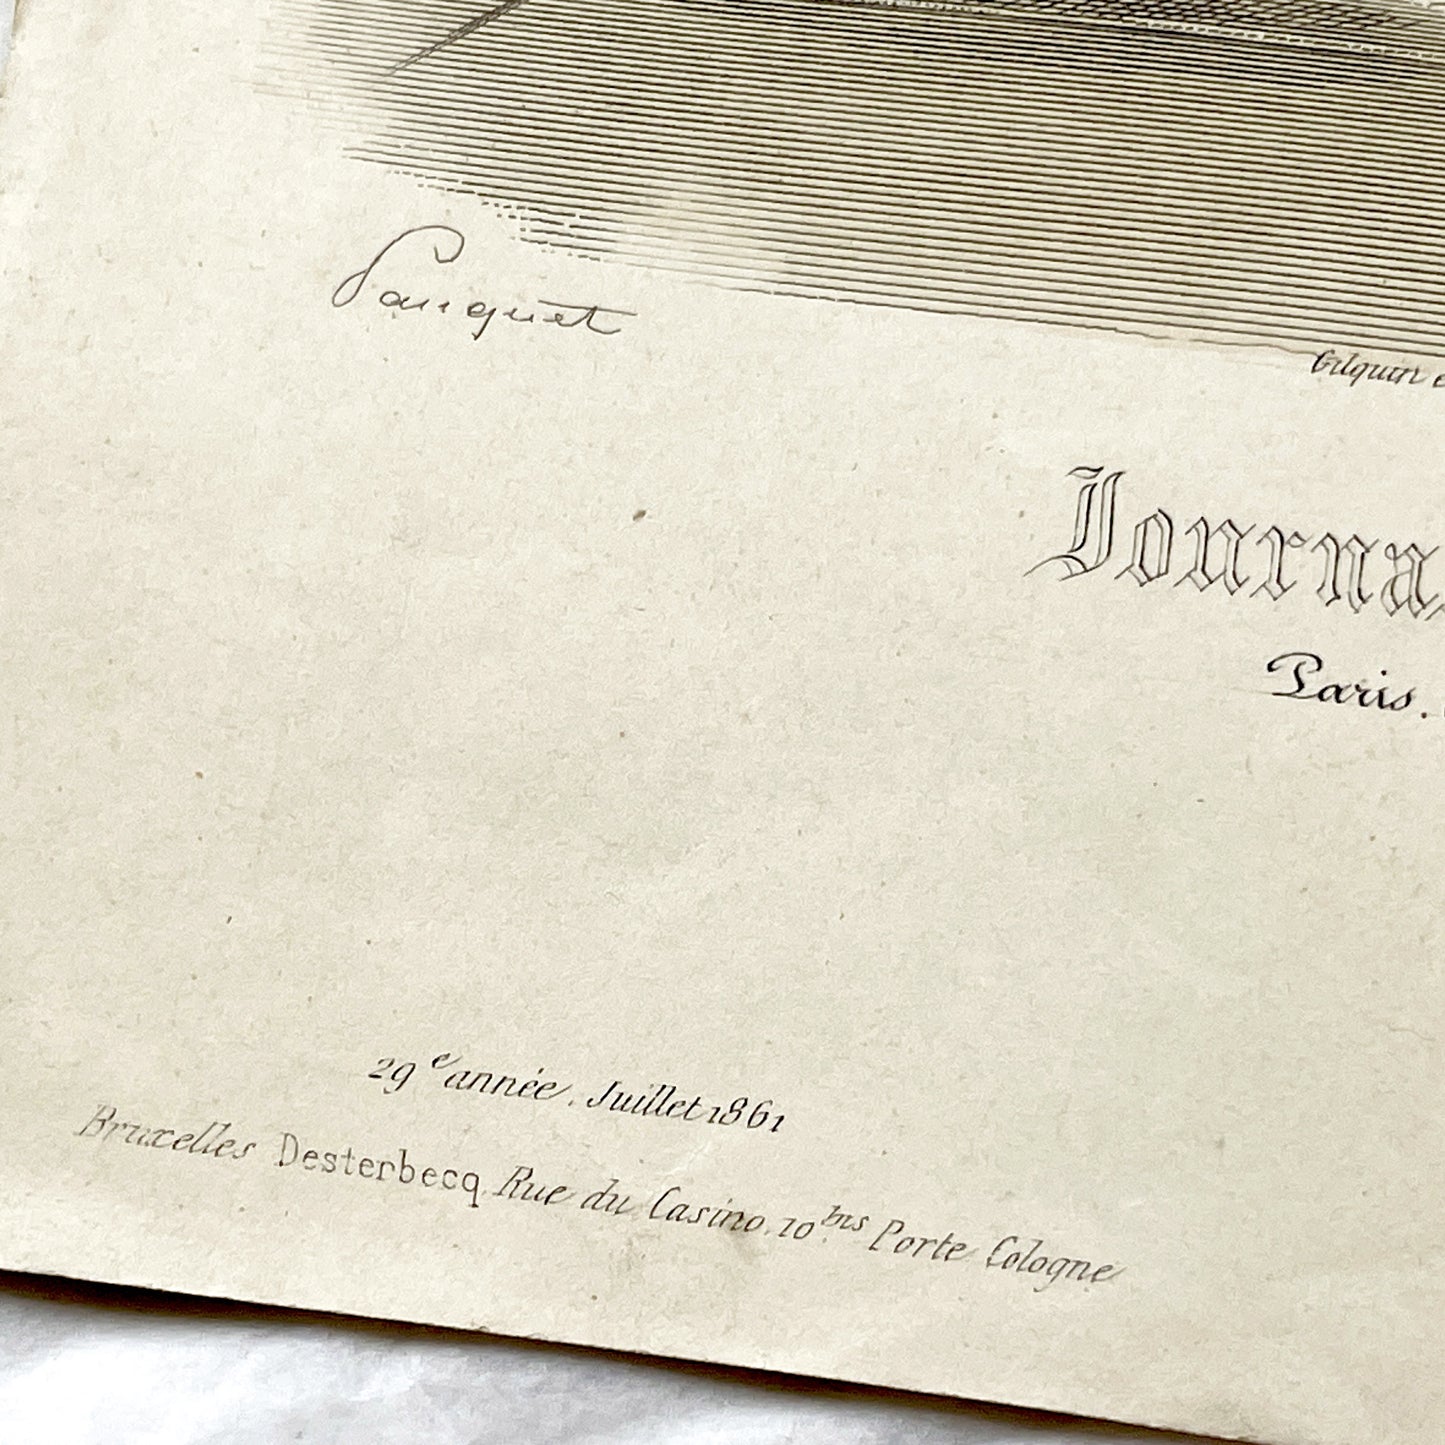 Pauquet
Gilquin e
Journa
Paris.
29e année. Juillet 1861
Bruxelles Desterbecq, Rue du Casino. 10 bis Porte Cologne